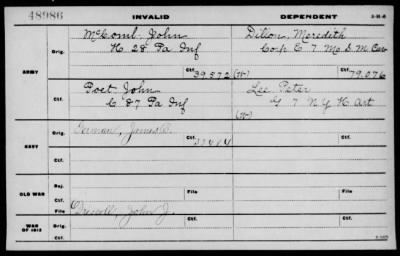 48986 INVALID DEPENDENT 3-11-6
McComb, John Dillon, Meredith
Orig. K 28 Pa Inf Corp C 7 Mo S. M Cav
ARMY Ctf. 39.872 (W) Ctf. 79,076
Poet John Lee Peter
Ctf. C 87 Pa Inf G 7 N Y H Art
(W)
Orig. James
NAVY
Ctf.
OLD WAR Rej. File File
Ctf.
File Driscoll, John J.
WAR OF 1812 Orig.
Ctf.